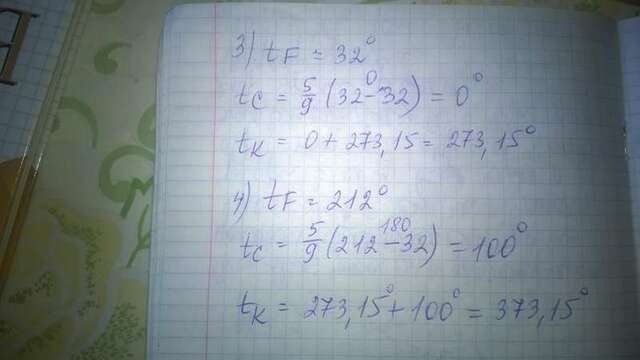 3) tF = 32°
tC = 5/9 (32 - 32) = 0°
0
tK = 0 + 273,15 = 273,15°
4) tF = 212°
180
tC = 5/9 (212 - 32) = 100°
tK = 273,15° + 100° = 373,15°